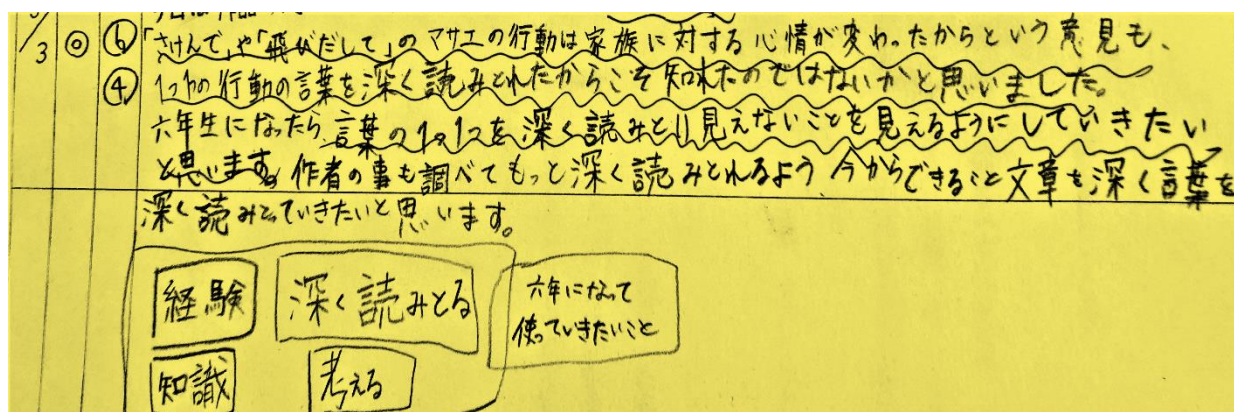 3 ◎ ⑥ 「さけんで」や「飛びだして」のマサエの行動は家族に対する心情が変わったからという意見も、
④ 1つ1つの行動の言葉を深く読みとれたからこそ知れたのではないかと思いました。
六年生になったら、言葉の1つ1つを深く読みとり見えないことを見えるようにしていきたい
と思います。作者の事も調べてもっと深く読みとれるよう今からできること文章を深く言葉を
深く読みとっていきたいと思います。
経験 深く読みとる 六年になって
使っていきたいこと
知識 考える